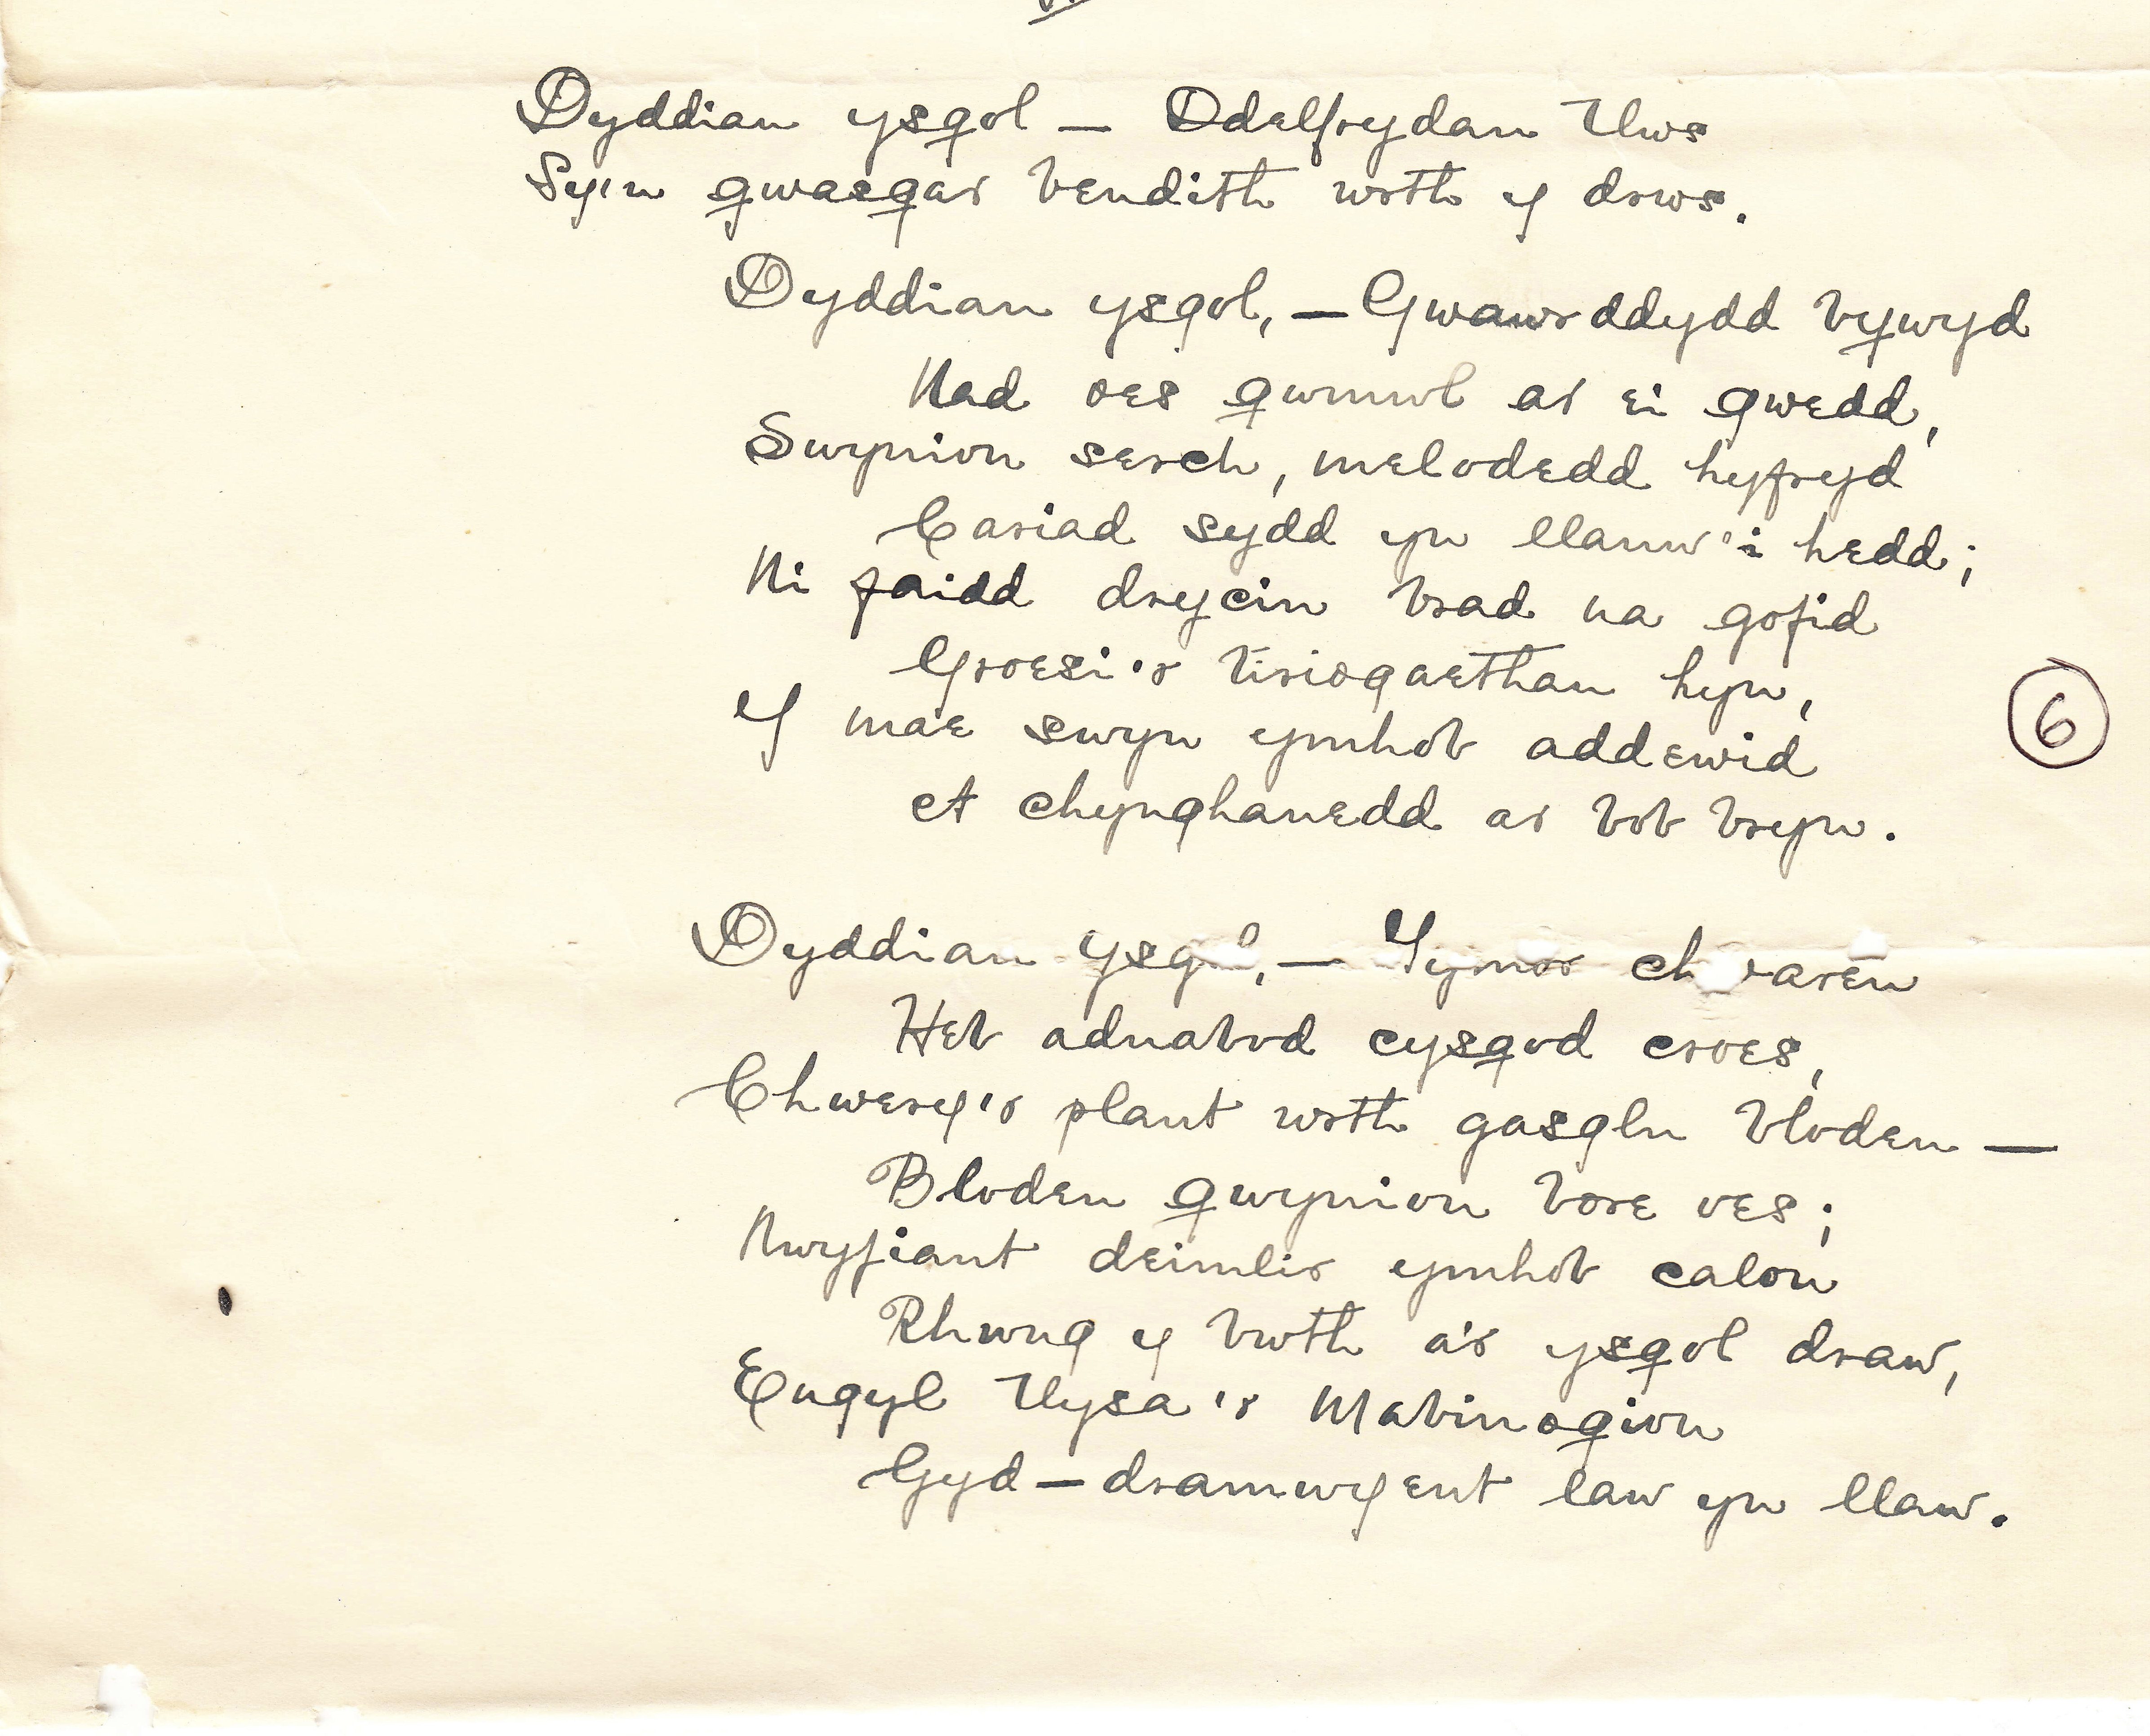 Dyddiau ysgol — Ddelfrydau tlws
Sy'n gwasgar bendith wrth y drws.
Dyddiau ysgol, — Gwawrddydd bywyd
Nad oes gwmwl ar ei gwedd,
Swynion serch, melodedd hyfryd
Cariad sydd yn llanw'i hedd;
Ni faidd drycin brad na gofid
Groesi'r tiriogaethau hyn,
Y mae swyn ymhob addewid
A chynghanedd ar bob bryn.
6
Dyddiau ysgol, — Tymor chwareu
Heb adnabod cysgod croes,
Chwery'r plant wrth gasglu blodeu —
Blodeu gwynion bore oes;
Nwyfiant deimlir ymhob calon
Rhwng y bwth a'r ysgol draw,
Engyl tlysa'r Mabinogion
Gyd-dramwyent law yn llaw.